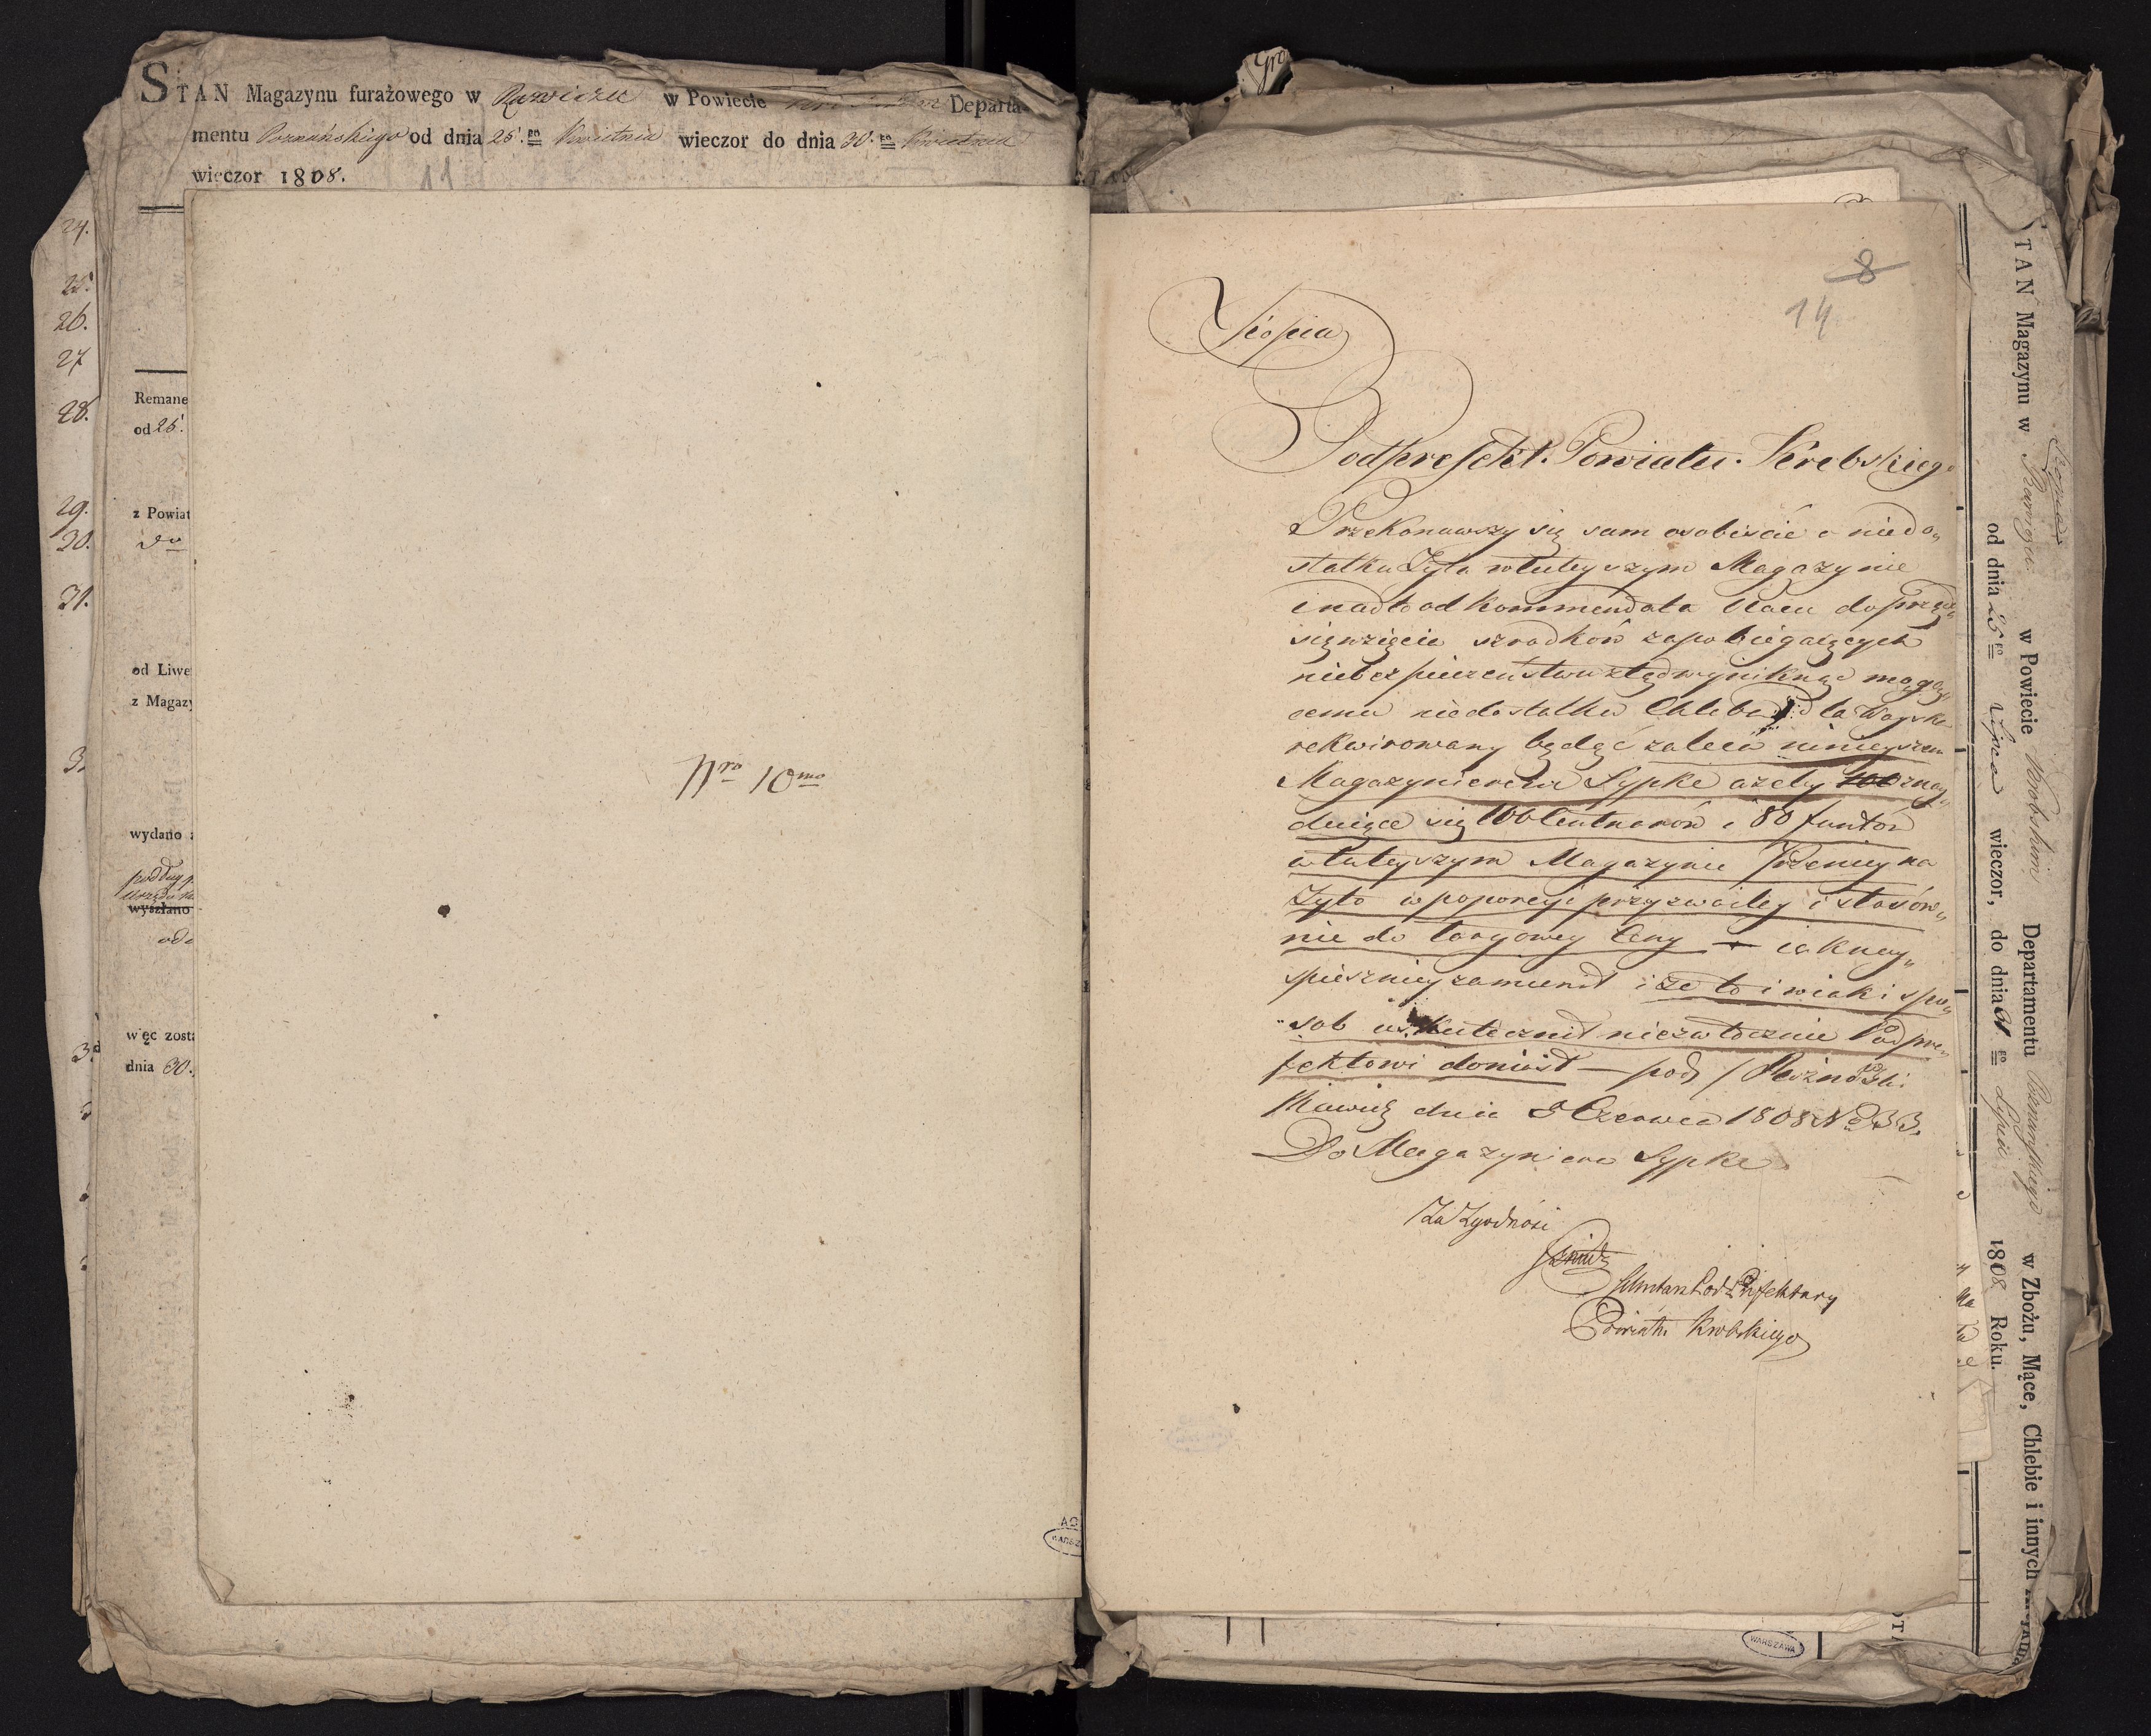 STAN Magazynu furażowego w Rawiczu w Powiecie Departa-
mentu Poznańskiego od dnia 25. go Kwietnia wieczor do dnia 30. go Kwietnia
wieczor 1808.
11
24.
25.
26.
27
28.
29.
30.
31.
Remane
od 25.
z Powiat
do
od Liwe
z Magazy
wydano
podług
wyszłano
więc zosta
dnia 30.
Nro 10mo
8
14
Kopia
Podprefekt. Powiatu. Krobskiego
Przekonawszy się sam osobiście o niedo„
statku Zyta w tuteyszym Magazynie
i nadto od Kommendata Placu do przed„
sięwzięcia szrodków zapobiegaiących
niebezpieczeństwu ztąd wyniknąć mogą„
cemu niedostatku Chleba dla Woyska
rekwirowany będąc zaleca ninieyszem
Magazynierowi Sypke azeby 100 znay„
duiące się 106 Centnarów i 80 funtów
w tuteyszym Magazynie Pszenicy na
Zyto w poporcyi przyzwoitey i stosow„
nie do targowey Ceny — iak nay„
spieszniey zamienił i że to i w iaki spo„
sob uskutecznił niezwłocznie Podpre„
fektowi doniosł — pod
Rawicz dnia 8 Czerwca 1808 No 933.
Do Magazyniera Sypke
Za Zgodność
Podprefektury
Powiatu Krobskiego
Kopia
STAN Magazynu w Rawiczu w Powiecie Krobskim Departamentu Poznańskiego w Zbożu, Mące, Chlebie i innych
od dnia 25 go Lipca wieczor, do dnia 31 go Lipca 1808 Roku.
WARSZAWA